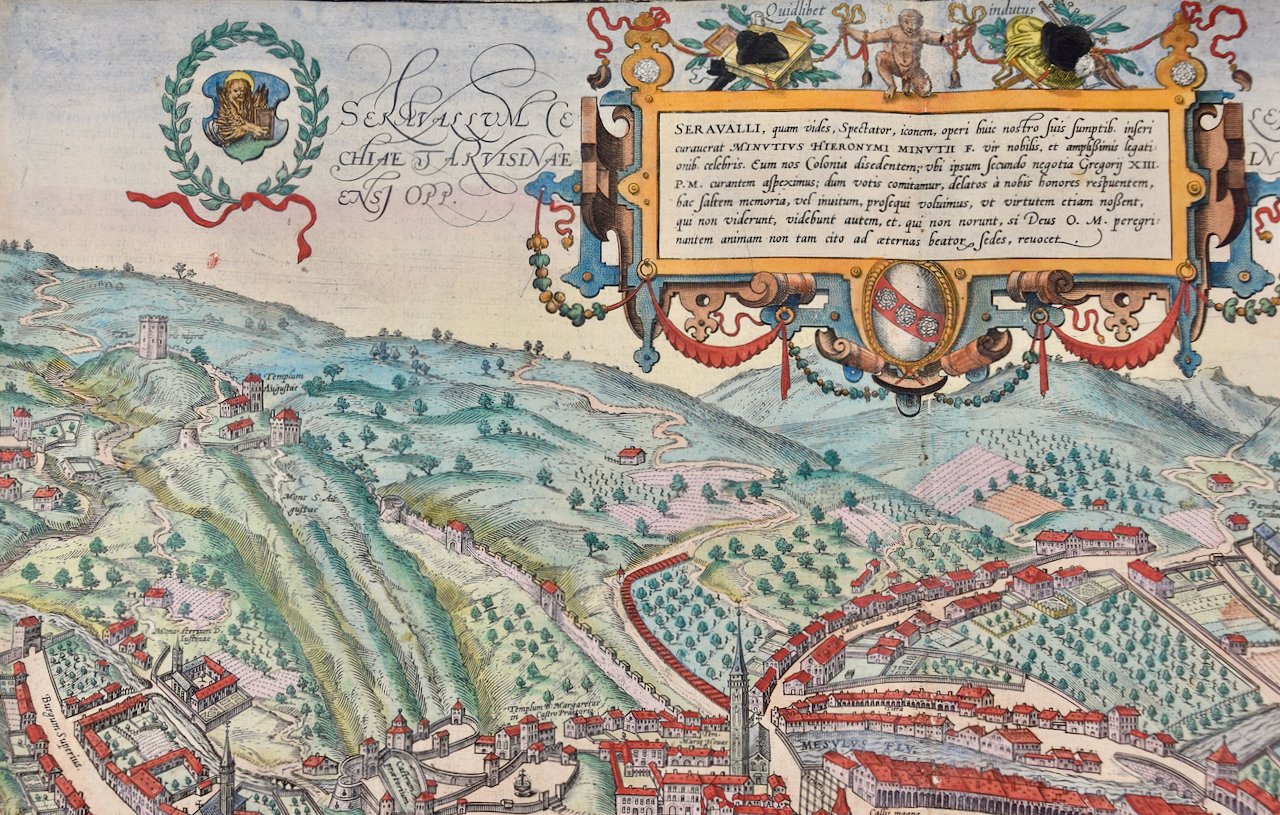 Quidlibet indutus
SERAVALLVM CE
CHIAE TARVISINAE
ENSI OPP.
SERAVALLI, quam vides, Spectator, iconem, operi huic nostro suis sumptib. inseri
curauerat MINVTIVS HIERONYMI MINVTII F. vir nobilis, et amplißimis legati-
onib. celebris. Eum nos Colonia disedentem, vbi ipsum secundo negotia Gregorij XIII.
P.M. curantem aspeximus; dum votis comitamur, delatos à nobis honores respuentem,
hac saltem memoria, vel inuitum, prosequi voluimus, vt virtutem etiam noßent,
qui non viderunt, videbunt autem, et, qui non norunt, si Deus O. M. peregri-
nantem animam non tam cito ad æternas beator. sedes, reuocet.
IN
Templum
Augustae
Mons S. Au
gustae
Monasterium D.
Iustinae
Burgum Superius
Templum B. Margaretae
MESVLVS FLV.
Callis magna